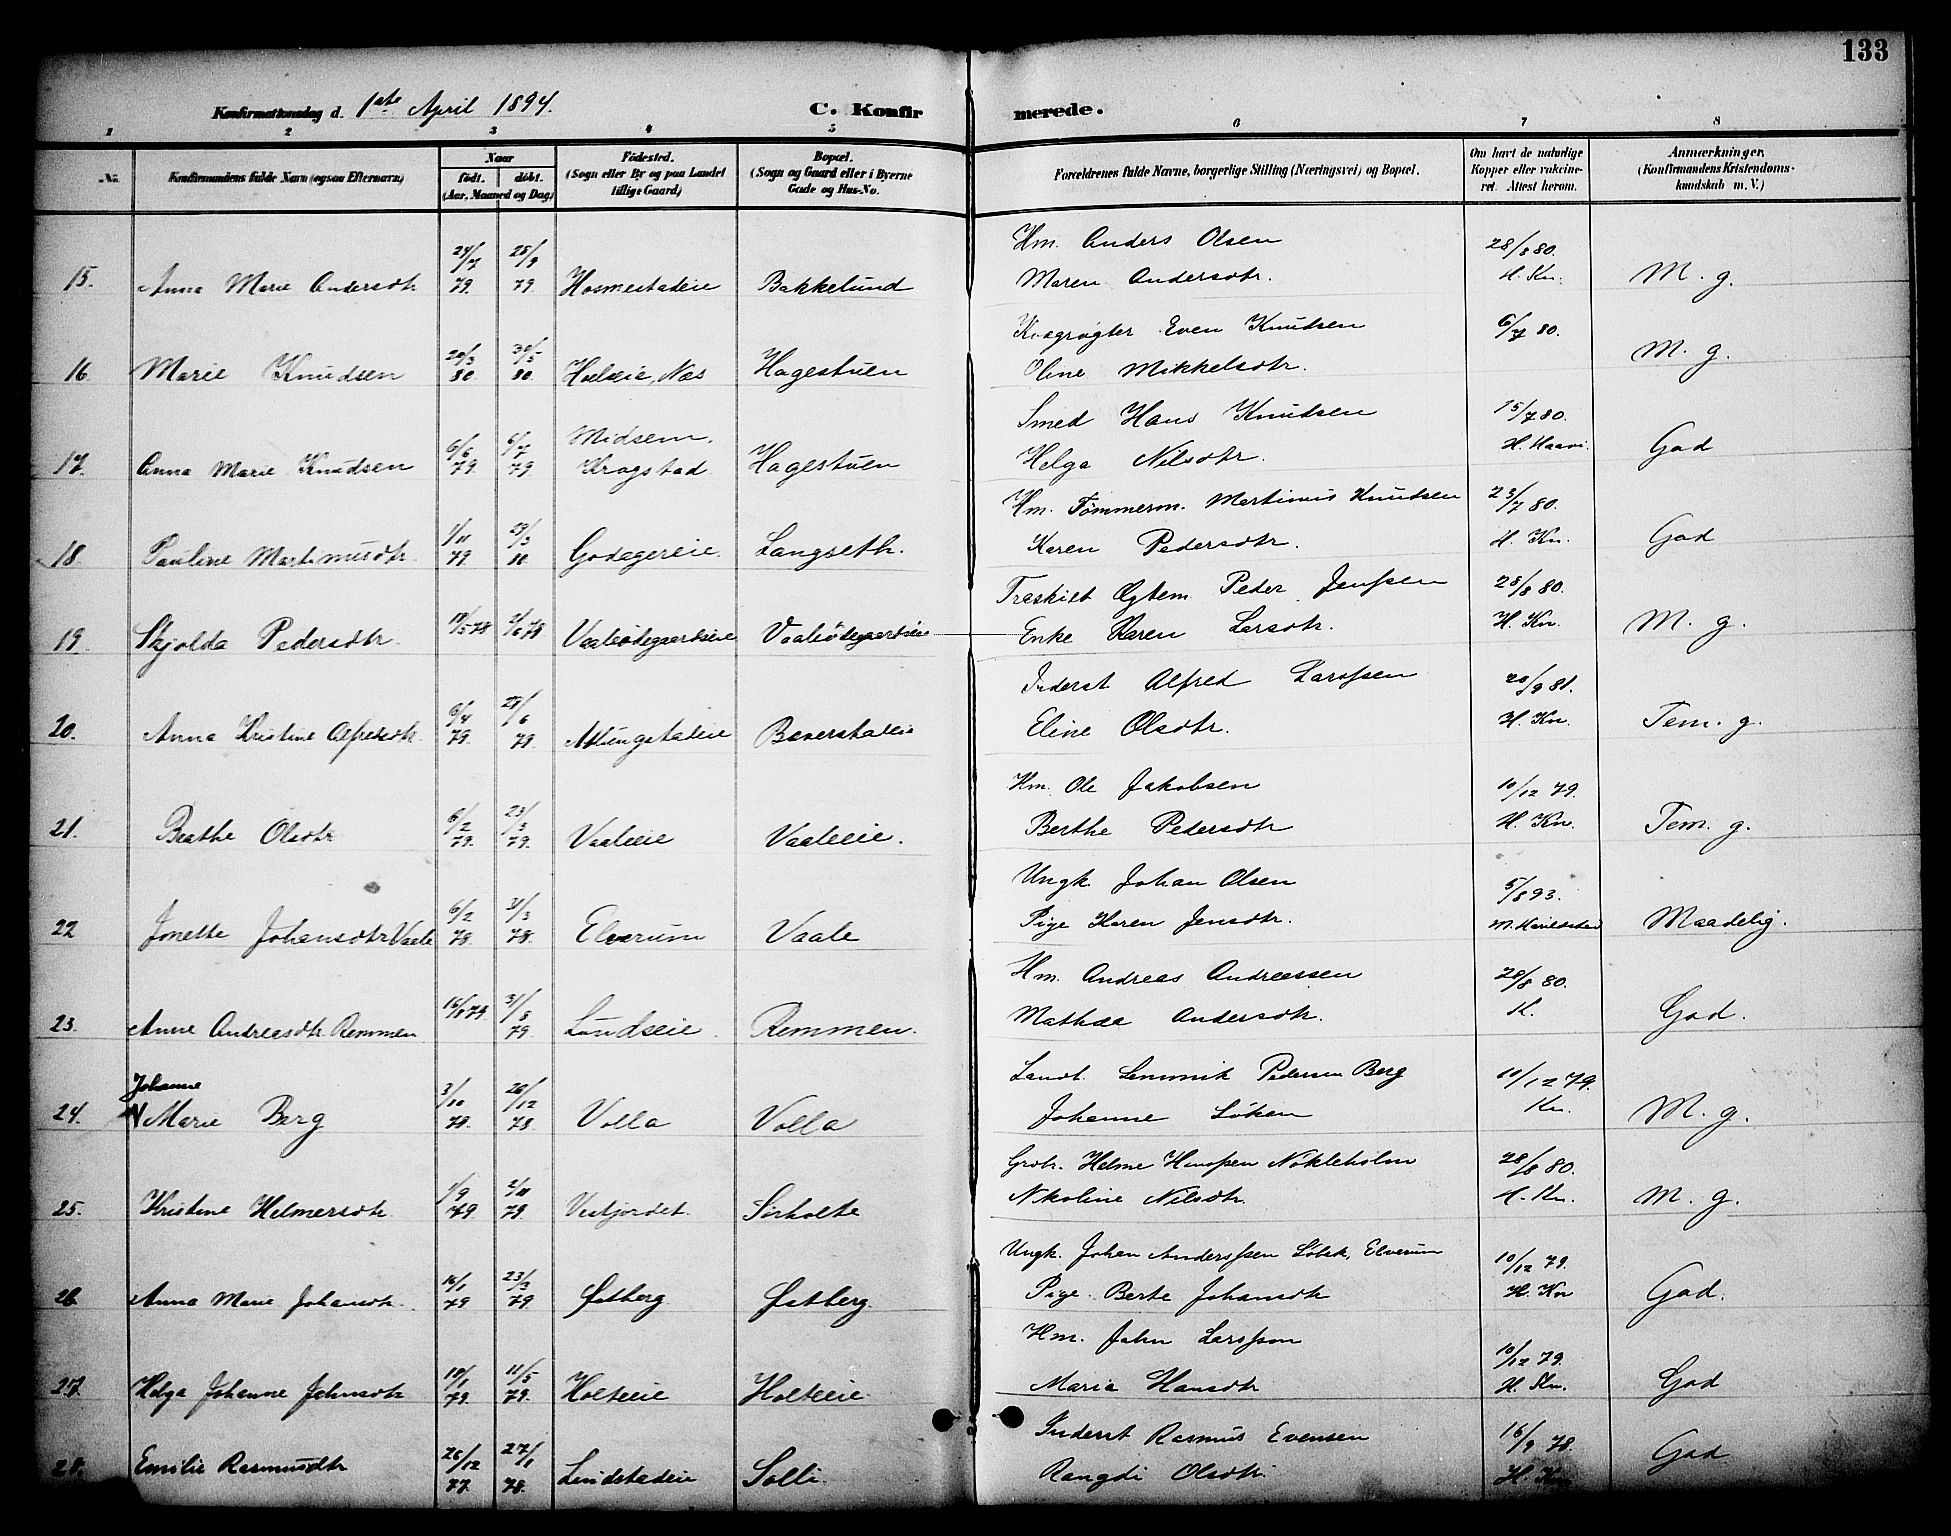 133
Konfirmationsdag d. 1ste April 1894. C. Konfirmerede.
1 2 3 4 5 6 7 8
No. Konfirmandens fulde Navn (ogsaa Efternavn.) Naar født. døbt. (Aar, Maaned og Dag) Fødested. (Sogn eller By og paa Landet tillige Gaard.) Bopæl. (Sogn og Gaard eller i Byerne Gade og Hus-No. Forældrenes fulde Navne, borgerlige Stilling (Næringsvei) og Bopæl. Om havt de naturlige Kopper eller vakcineret. Attest herom. Anmærkninger. (Konfirmandens Kristendomskundskab m. V.)
15. Anna Marie Andersdtr 24/7 79. 25/8 79. Bakkelund Hm. Anders Olsen Maren Andersdtr. 28/8 80. H. Kn. M. g.
16. Marie Knudsen 20/3 80. 30/5 80. Hagestuen Even Knudsen Oline Mikkelsdtr. 6/7 80. M. g.
17. Anna Marie Knudsen 6/6 79. 6/7 79 Midsem. Krogstad Hagestuen Smed Hans Knudsen Helga Nilsdtr. 15/7 80. H. Haavi. God
18. Pauline Martinusdtr. 1/11 79. 29/3 80. Godagereie. Langseth. Hm. Tømmerm. Martinus Knudsen Karen Pedersdtr. 23/7 80. H. Kn. God
19. Skjolda Pedersdtr. 19/5 78 Vaaleødegaardseie Vaaleødegaardseie Fraskilt Ægtem. Peder Jenssen Enke Karen Larsdtr. 28/8 80. H. Kn. M. g.
20. Anna Kristine Alfredsdtr. 9/4 79. 6 79. Beverstadeie Inderst Alfred Larssen Eline Olsdtr. 20/9 81. H. Kn. Tem. g.
21. Beathe Olsdtr 6/2 79. 23/3 79. Vaaleeie Vaaleeie. Hm. Ole Jakobsen Berthe Pedersdtr 10/12 79. H. Kn. Tem. g.
22 Jonette Johansdtr Vaale 6/2 78. 31/3 78. Elverum Vaale Ungk. Johan Olsen Pige Karen Jensdtr. 5/8 93. Maadelig.
23. Anne Andreasdtr. Remmen 16/8 79. 31/8 79 Lundseie. Remmen. Hm. Andreas Andreassen Mathea Andersdtr. 28/8 80. K. God.
24. Johanne Marie Berg 3/10 79. 26/12 78. Volla Volla Landh. Lemmik Pedersen Berg Johanne Løken 10/12 79. Kn. M. g.
25. Kristine Helmersdtr. 1/9 79 2/11 79. Vestfjordet. Sørholte Helme Hanssen Nokleholm Nikoline Nilsdtr. 28/8 80. H. Kn. M. g.
26. Anna Marie Johansdtr. 16/1 79 23/3 79 Østberg Østberg. Ungk. Johan Anderssen Elverum Pige Berte Johansdtr 10/12 79. H. Kn God.
27. Helga Johanne Johnsdtr 19/1 79. 11/5 79. Holteeie Holteeie Hm. John Larsson Maria Hansdtr 10/12 79. H. Kn. God
28. Emilie Rasmusdtr 26/12 77. 27/1 78. Lundstadeie Solli. Inderst Rasmus Evensen Rangdi Olsdtr. 16/9 78. H. Kn God